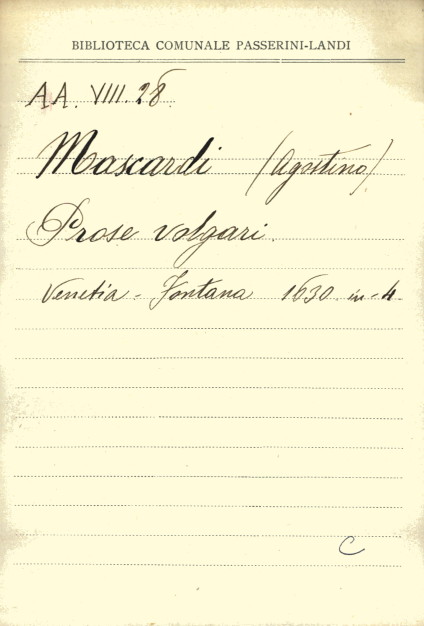 BIBLIOTECA COMUNALE PASSERINI-LANDI
AA. VIII. 28.
Mascardi (Agostino)
Prose volgari.
Venetia - Fontana 1630 in-4
C